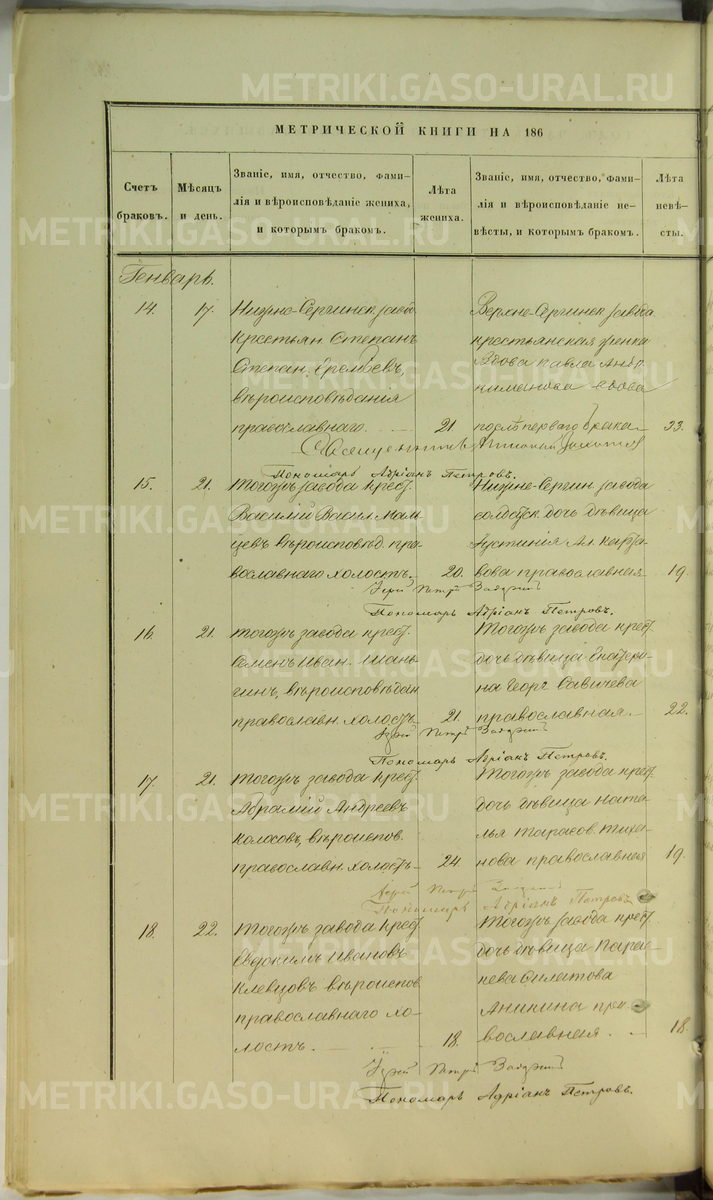 METRIKI.GASO-URAL.RU
МЕТРИЧЕСКОЙ КНИГИ НА 186
Счетъ браковъ.
Мѣсяцъ и день.
Званіе, имя, отчество, фами-
лія и вѣроисповѣданіе жениха,
и которымъ бракомъ.
Лѣта жениха.
Званіе, имя, отчество, фами-
лія и вѣроисповѣданіе не-
вѣсты, и которымъ бракомъ.
Лѣта невѣ-
сты.
Генварь.
14. 17. Нижно-Сергинск. завод.
Крестьян Степанъ
Степан.
вѣроисповѣданія
православнаго 21
Верхне-Сергинск завода
крестьянская женка
вдова Павла
вдова
послѣ перваго брака 23.
Священникъ
Пономарь Адріанъ Петровъ.
15. 21. Тогожъ завода крест.
Василій Васил.
вѣроисповѣд. пра-
вославнаго холостъ. 20.
Нижно-Сергин. завода
солдатск дочь дѣвица
Устинія
православная 19.
Іерей Петръ
Пономарь Адріанъ Петровъ.
16 21. Тогожъ завода крест.
Семенъ Иван. Шань-
гинъ, вѣроисповѣдан
православн. холостъ 21.
Тогожъ завода крест.
дочь дѣвица Екатери-
на Георг Савичева
православная. 22.
Іерей Петръ
Пономарь Адріанъ Петровъ.
17. 21. Тогожъ завода крест.
Абрамій Андреевъ
Колосовъ, вѣроиспов.
православн. холостъ 24.
Тогожъ завода крест
дочь дѣвица Ната-
лья Тарасов. Тиха-
нова православная 19.
Іерей Петръ
Пономарь Адріанъ Петровъ
18. 22. Тогожъ завода крест
Евдокимъ Ивановъ
Клевцовъ вѣроиспов
православнаго хо-
лостъ. 18.
Тогожъ завода крест
дочь дѣвица Параске-
ва Филатова
Аникина пра-
вославная. 18.
Іерей Петръ
Пономарь Адріанъ Петровъ.